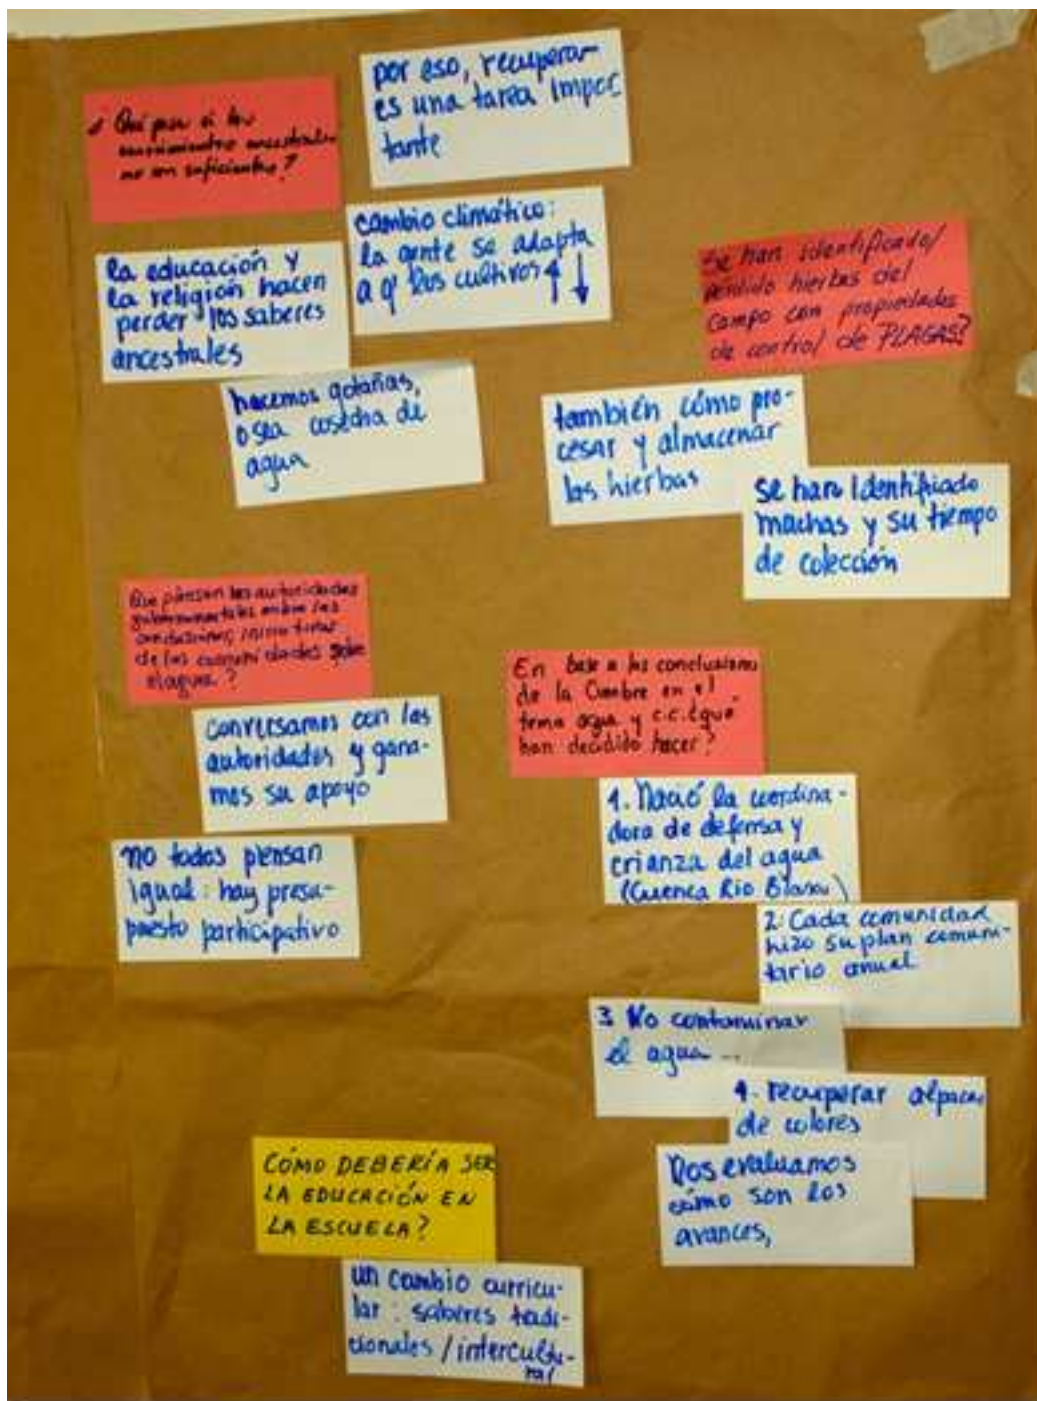 ¿ Qué pasa si los
conocimientos ancestrales
no son suficientes?
por eso, recuperar
es una tarea impor
tante
cambio climático:
la gente se adapta
a q' los cultivos ↑ ↓
la educación y
la religión hacen
perder los saberes
ancestrales
hacemos qotañas,
o sea cosecha de
agua
Se han identificado/
perdido hierbas del
campo con propiedades
de control de PLAGAS?
también cómo pro-
cesar y almacenar
las hierbas
se han identificado
muchas y su tiempo
de colección
Que piensan las autoridades
gubernamentales sobre las
conclusiones, iniciativas
de las comunidades sobre
el agua?
conversamos con las
autoridades y gana-
mos su apoyo
no todos piensan
igual: hay presu-
puesto participativo
En base a las conclusiones
de la Cumbre en el
tema agua y c.c. ¿qué
han decidido hacer?
1. Nació la coordina-
dora de defensa y
crianza del agua
(Cuenca Rio Blanco)
2. Cada comunidad
hizo su plan comuni-
tario anual
3 No contaminar
el agua ...
4. recuperar alpacas
de colores
Nos evaluamos
cómo son los
avances,
CÓMO DEBERÍA SER
LA EDUCACIÓN EN
LA ESCUELA?
un cambio curricu-
lar: saberes tradi-
cionales / intercultu-
ral